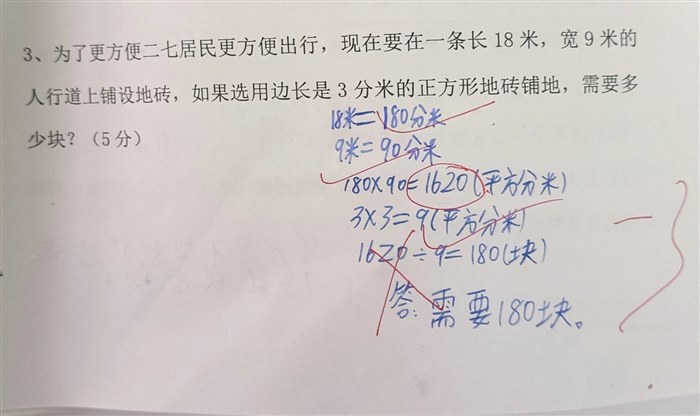 3、为了更方便二七居民更方便出行，现在要在一条长 18 米，宽 9 米的
人行道上铺设地砖，如果选用边长是 3 分米的正方形地砖铺地，需要多
少块？（5 分）
18米=180分米
9米=90分米
180×90=1620(平方分米)
3×3=9(平方分米)
1620÷9=180(块)
答:需要180块。